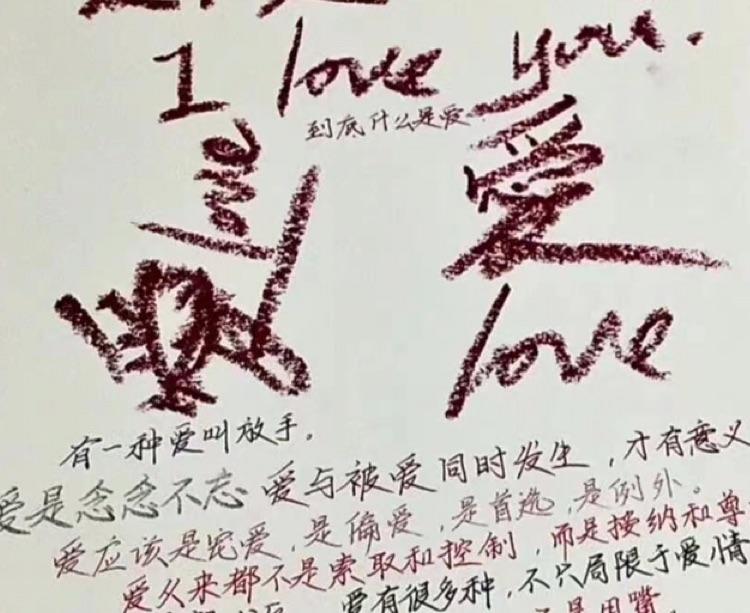 I love you.
到底什么是爱
love
爱
love
有一种爱叫放手。
爱是念念不忘 爱与被爱同时发生,才有意义
爱应该是宠爱,是偏爱,是首选,是例外。
爱久来都不是索取和控制,而是接纳和尊
爱有很多种,不只局限于爱情
是用嘴